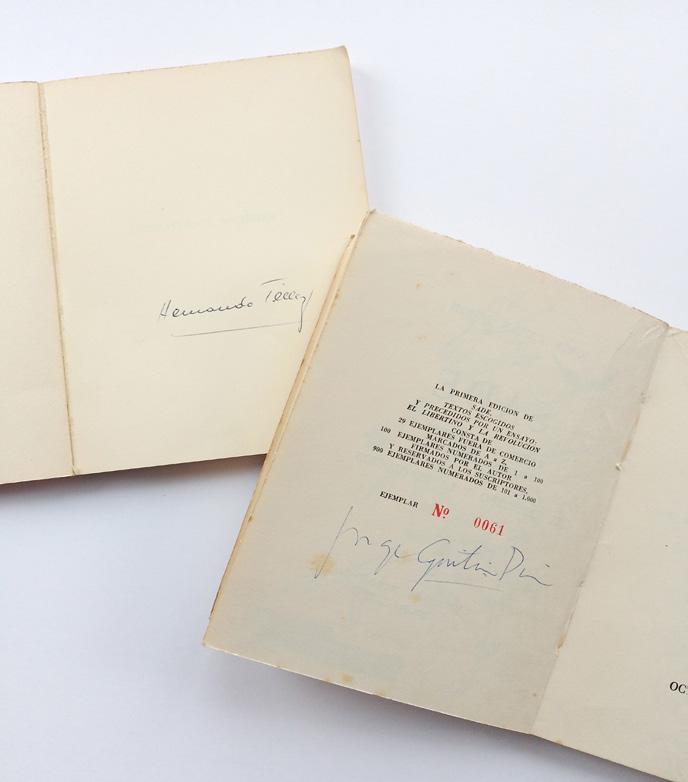 Hernando Téllez
LA PRIMERA EDICION DE
SADE,
TEXTOS ESCOGIDOS
Y PRECEDIDOS POR UN ENSAYO:
EL LIBERTINO Y LA REVOLUCION
CONSTA DE
29 EJEMPLARES FUERA DE COMERCIO
MARCADOS DE A a Z,
100 EJEMPLARES NUMERADOS DE 1 a 100
FIRMADOS POR EL AUTOR
Y RESERVADOS A LOS SUSCRIPTORES,
900 EJEMPLARES NUMERADOS DE 101 a 1,000
EJEMPLAR Nº 0061
Jorge Gaitán
OC